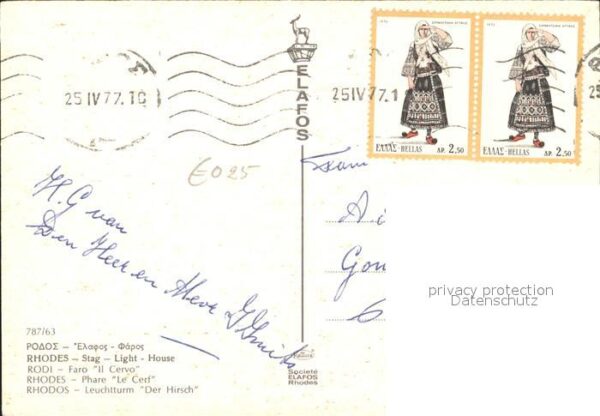 25 IV 77.10
25 IV 77.1
ΕΛΛΑΣ-HELLAS ΔΡ. 2,50
ΕΛΛΑΣ-HELLAS ΔΡ. 2,50
ELAFOS
€025
H.G van
Den Heer en Mevr
A
Gou
privacy protection
Datenschutz
787/63
ΡΟΔΟΣ – Ἔλαφος - Φάρος
RHODES – Stag – Light - House
RODI – Faro "Il Cervo"
RHODES – Phare "Le Cerf"
RHODOS – Leuchtturm "Der Hirsch"
Société
ELAFOS
Rhodes